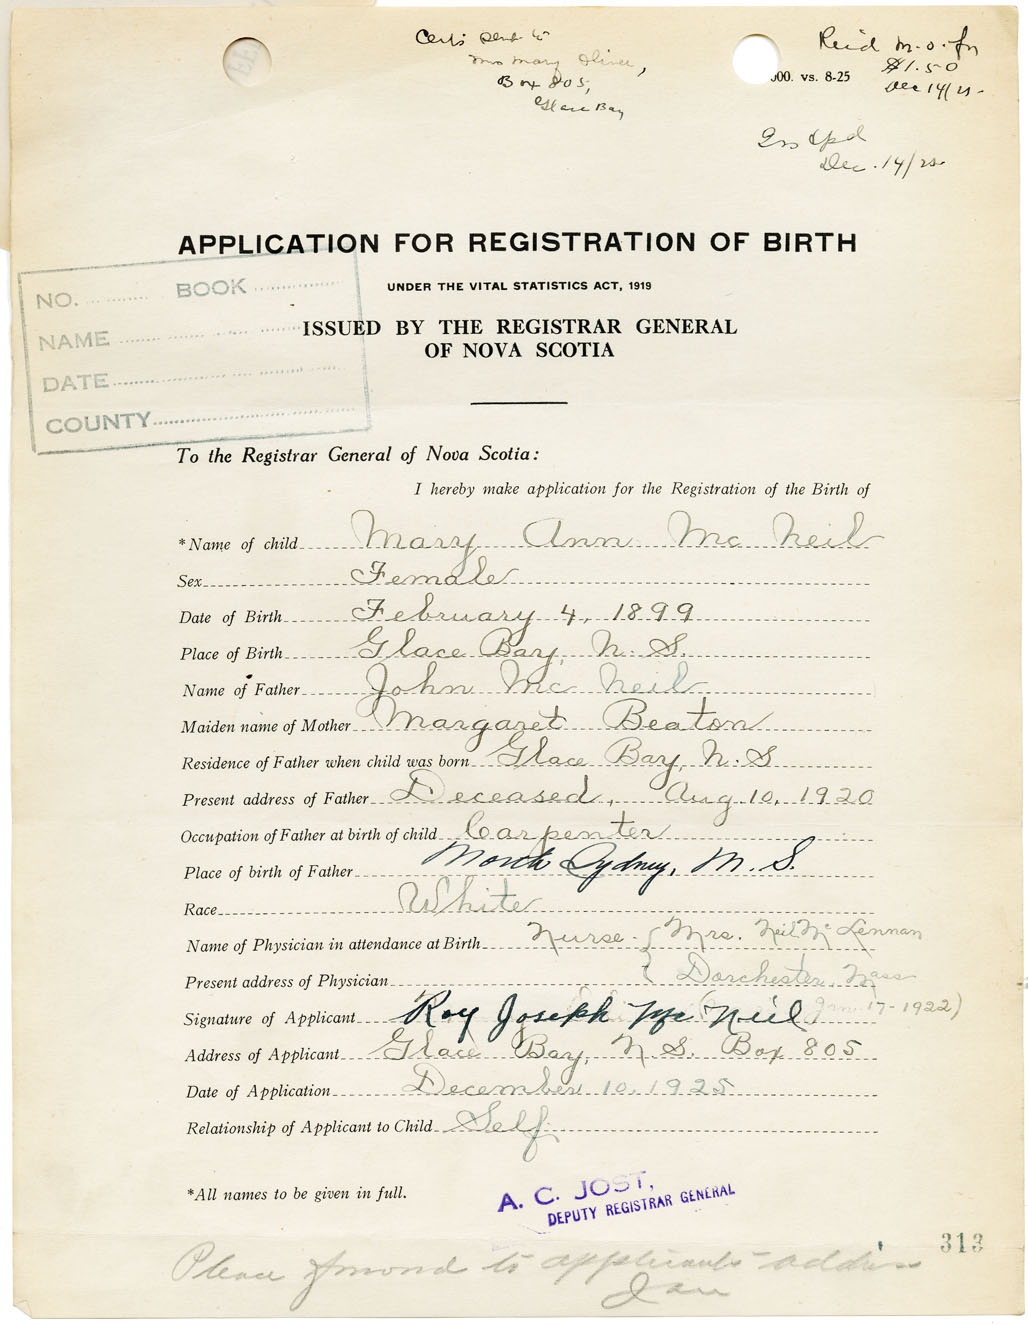 Certs sent to
Mrs Mary Oliver,
Box 805,
Glace Bay
Rec'd M.O. for
$1.50
Dec 14/25
000. vs. 8-25
Dec. 14/25
APPLICATION FOR REGISTRATION OF BIRTH
UNDER THE VITAL STATISTICS ACT, 1919
ISSUED BY THE REGISTRAR GENERAL
OF NOVA SCOTIA
NO. BOOK
NAME
DATE
COUNTY
To the Registrar General of Nova Scotia:
I hereby make application for the Registration of the Birth of
*Name of child Mary Ann Mc Neil
Sex Female
Date of Birth February 4, 1899
Place of Birth Glace Bay, N. S.
Name of Father John Mc Neil
Maiden name of Mother Margaret Beaton
Residence of Father when child was born Glace Bay, N. S
Present address of Father Deceased, Aug. 10, 1920
Occupation of Father at birth of child Carpenter
Place of birth of Father North Sydney, N. S.
Race White
Name of Physician in attendance at Birth Nurse - { Mrs. Neil Mc Lennan
Present address of Physician { Dorchester, Mass
Jan. 17-1922)
Signature of Applicant Roy Joseph Mc Neil
Address of Applicant Glace Bay, N. S. Box 805
Date of Application December 10, 1925
Relationship of Applicant to Child Self
*All names to be given in full.
A. C. JOST,
DEPUTY REGISTRAR GENERAL
313
Please to applicants address